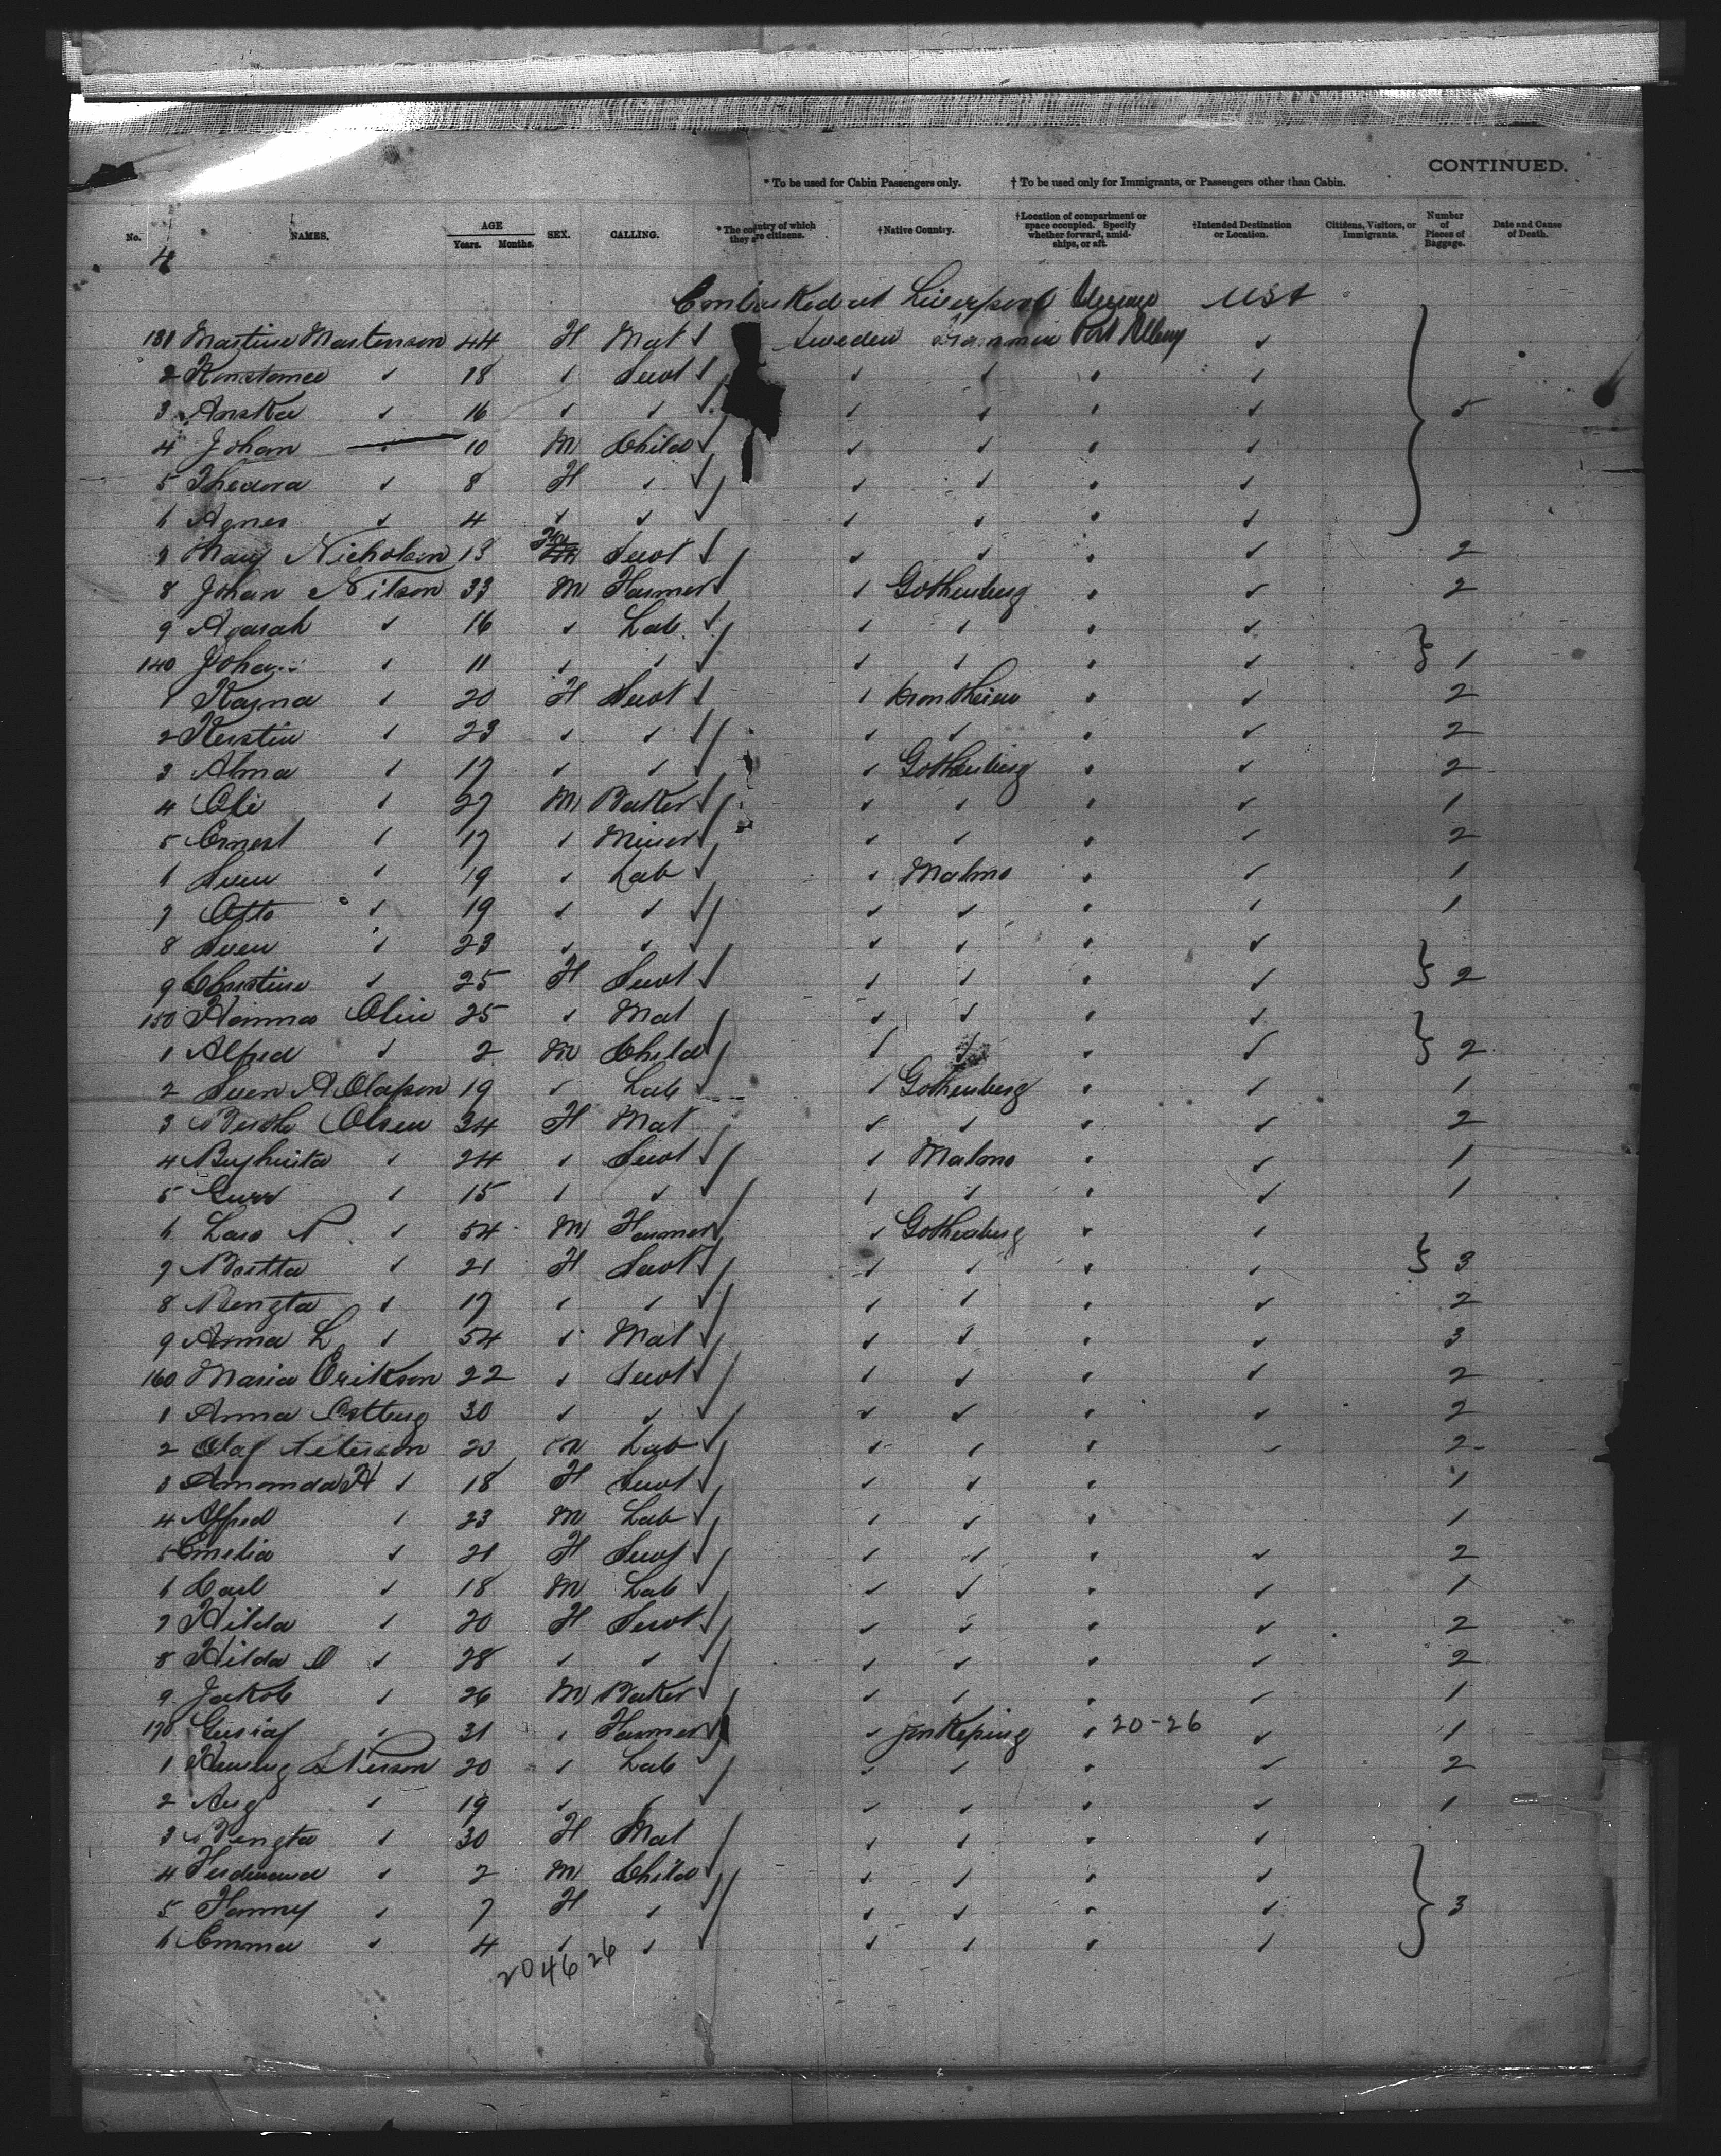 CONTINUED.
* To be used for Cabin Passengers only. † To be used only for Immigrants, or Passengers other than Cabin.
No. NAMES. AGE Years. Months. SEX. CALLING. * The country of which they are citizens. † Native Country. † Location of compartment or space occupied. Specify whether forward, amidships, or aft. † Intended Destination or Location. Citizens, Visitors, or Immigrants. Number of Pieces of Baggage. Date and Cause of Death.
4
Embarked at Liverpool USA
131 Martine Martenson 44 F Mat ✓ Sweden Port ✓
2 ✓ 18 ✓ Servt ✓ ✓ ✓ ✓ ✓
3 ✓ 16 ✓ ✓ ✓ ✓ ✓ ✓ ✓ 5
4 Johan 10 M Child ✓ ✓ ✓ ✓ ✓
5 Thedora ✓ 8 F ✓ ✓ ✓ ✓ ✓ ✓
6 Agnes ✓ 4 ✓ ✓ ✓ ✓ ✓ ✓ ✓
7 Mary Nicholson 13 Servt ✓ ✓ ✓ ✓ ✓ 2
8 Johan Nilson 33 M Farmer ✓ ✓ Gothenberg ✓ ✓ 2
9 ✓ 16 ✓ Lab ✓ ✓ ✓ ✓ ✓
140 Johan ✓ 11 ✓ ✓ ✓ ✓ ✓ ✓ ✓ 1
1 Kajna ✓ 20 F Servt ✓ ✓ ✓ ✓ 2
2 Kerstin ✓ 23 ✓ ✓ ✓ ✓ ✓ ✓ ✓ 2
3 Alma ✓ 17 ✓ ✓ ✓ ✓ Gothenberg ✓ ✓ 2
4 Ole ✓ 27 M Baker ✓ ✓ ✓ ✓ ✓ 1
5 Ernest ✓ 17 ✓ Miner ✓ ✓ ✓ ✓ ✓ 2
6 Sven ✓ 19 ✓ Lab ✓ ✓ Malmo ✓ ✓ 1
7 Otto ✓ 19 ✓ ✓ ✓ ✓ ✓ ✓ ✓ 1
8 Sven ✓ 23 ✓ ✓ ✓ ✓ ✓ ✓ ✓
9 Christine ✓ 25 F Servt ✓ ✓ ✓ ✓ ✓ 2
150 Hanna Olin 25 ✓ Mat ✓ ✓ ✓ ✓
1 Alfred ✓ 2 M Child ✓ ✓ ✓ ✓ ✓ 2
2 Sven A Olafson 19 ✓ Lab ✓ ✓ Gothenberg ✓ ✓ 1
3 Olsen 34 F Mat ✓ ✓ ✓ ✓ 2
4 ✓ 24 ✓ Servt ✓ ✓ Malmo ✓ ✓ 1
5 ✓ 15 ✓ ✓ ✓ ✓ ✓ ✓ ✓ 1
6 Lars P ✓ 54 M Farmer ✓ ✓ Gothenberg ✓ ✓
7 Britta ✓ 21 F Servt ✓ ✓ ✓ ✓ ✓ 3
8 Bengta ✓ 17 ✓ ✓ ✓ ✓ ✓ ✓ ✓ 2
9 Anna L ✓ 54 ✓ Mat ✓ ✓ ✓ ✓ ✓ 3
160 Maria Erikson 22 ✓ Servt ✓ ✓ ✓ ✓ ✓ 2
1 Anna Ostberg 30 ✓ ✓ ✓ ✓ ✓ ✓ ✓ 2
2 Olaf Peterson 20 M Lab ✓ ✓ ✓ ✓ ✓ 2
3 Amanda H ✓ 18 F Servt ✓ ✓ ✓ ✓ 1
4 Alfred ✓ 23 M Lab ✓ ✓ ✓ ✓ 1
5 Emelia ✓ 21 F Servt ✓ ✓ ✓ ✓ ✓ 2
6 Carl ✓ 18 M Lab ✓ ✓ ✓ ✓ ✓ 1
7 Hilda ✓ 20 F Servt ✓ ✓ ✓ ✓ ✓ 2
8 Hilda O ✓ 28 ✓ ✓ ✓ ✓ ✓ ✓ ✓ 2
9 Jakob ✓ 26 M Baker ✓ ✓ ✓ ✓ ✓ 1
170 Gustaf ✓ 31 ✓ Farmer ✓ ✓ Jonkeping ✓ 20-26 ✓ 1
1 20 ✓ Lab ✓ ✓ ✓ ✓ ✓ 2
2 Aug ✓ 19 ✓ ✓ ✓ ✓ ✓ ✓ ✓ 1
3 Bengta ✓ 30 F Mat ✓ ✓ ✓ ✓
4 Ferdinand ✓ 2 M Child ✓ ✓ ✓ ✓ ✓
5 Fanny ✓ 7 F ✓ ✓ ✓ ✓ ✓ ✓ 3
6 Emma ✓ 4 ✓ ✓ ✓ ✓ ✓ ✓ ✓
20 46 26